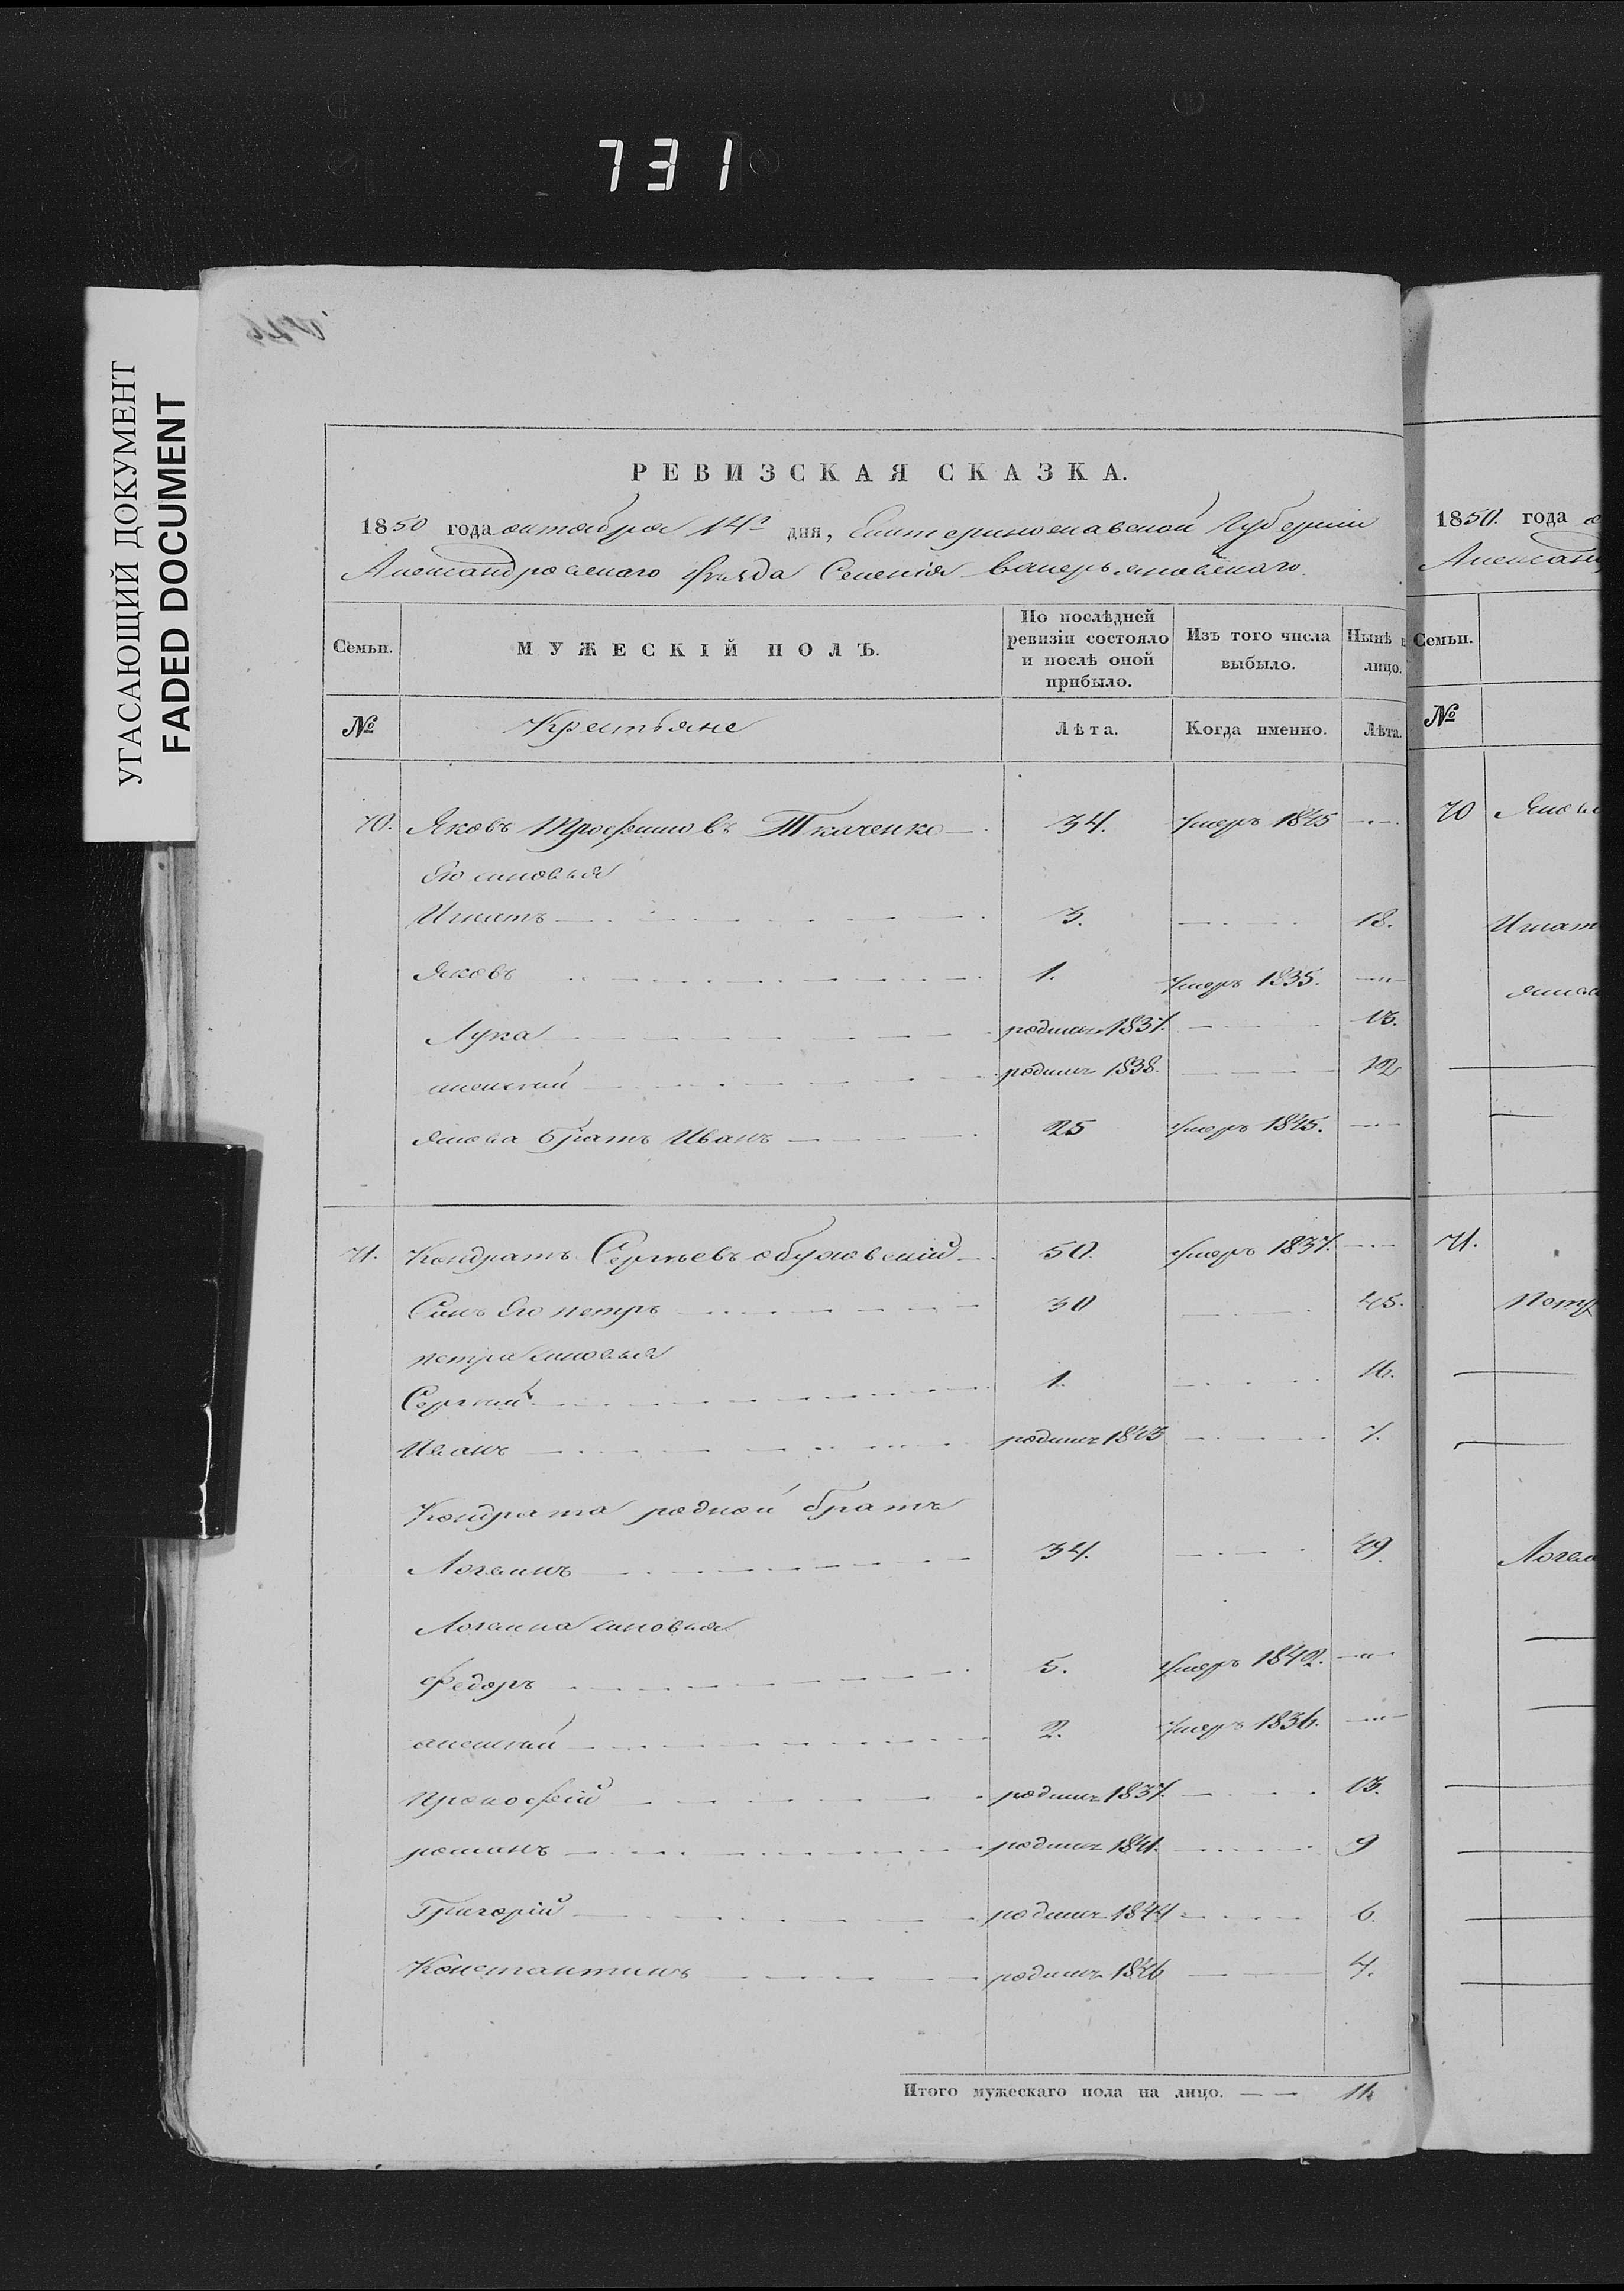 731
УГАСАЮЩИЙ ДОКУМЕНТ
FADED DOCUMENT
РЕВИЗСКАЯ СКАЗКА.
1850 года октября 14го дня, Екатеринославской Губернии
Александровскаго уезда Селения
Семьи. МУЖЕСКІЙ ПОЛЪ. По послѣдней ревизіи состояло и послѣ оной прибыло. Изъ того числа выбыло. Нынѣ лицо.
№ Крестьяне Лѣта. Когда именно. Лѣта.
70. Яковъ Трофимовъ Ткаченко 34. умеръ 1845
Его сыновья
Игнатъ 3. 18.
Яковъ 1. умеръ 1835.
Лука родился 1837. 13.
алексѣй родился 1838. 12
Якова братъ Иванъ 25 умеръ 1845.
71. Кондратъ Сергѣевъ обуховскій 50. умеръ 1837.
Сынъ Его петръ 30 45.
петра сыновья
Сергѣй 1. 16.
Иванъ родился 1843 7.
Кондрата родной братъ
Логвинъ 34. 49.
Логвина сыновья
Федоръ 5. умеръ 1842.
алексѣй 2. умеръ 1836.
прокофій родился 1837. 13.
романъ родился 1841. 9
Григорій родился 1844 6.
Константинъ родился 1846 4.
Итого мужескаго пола на лицо. 11
1850. года
Семьи.
№
70
71.